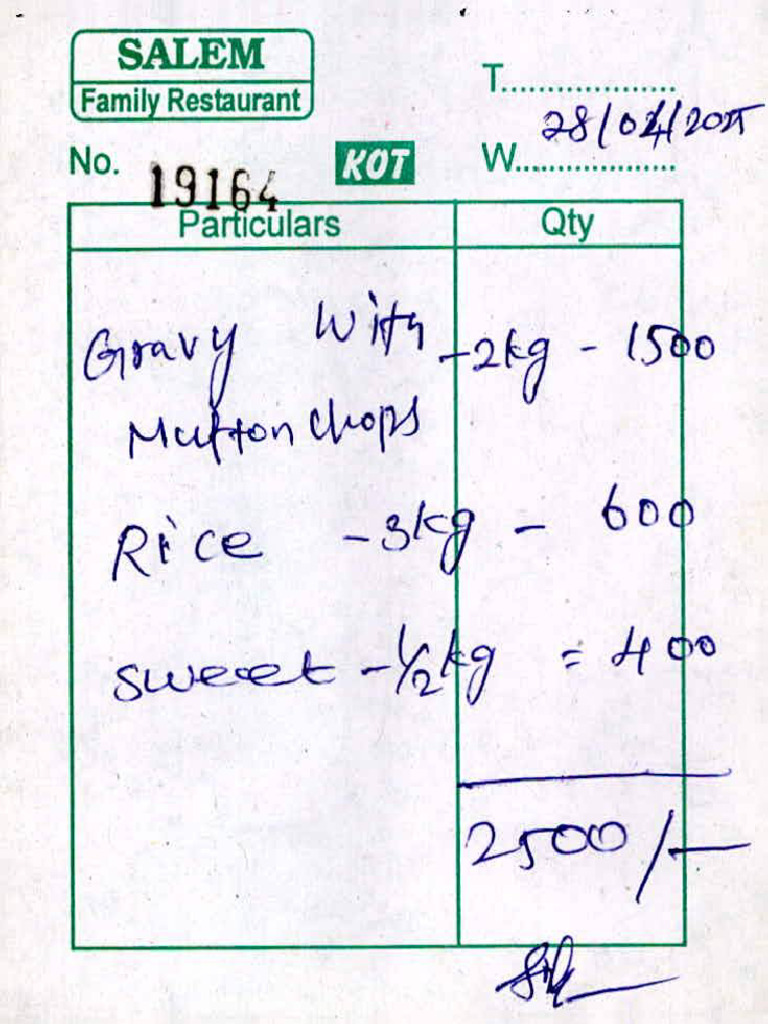 SALEM
Family Restaurant
T....................
28/04/2025
No. 19164
KOT
W....................
Particulars Qty
Gravy With -2kg - 1500
Mutton chops
Rice -3kg - 600
sweet -1/2kg = 400
2500/-